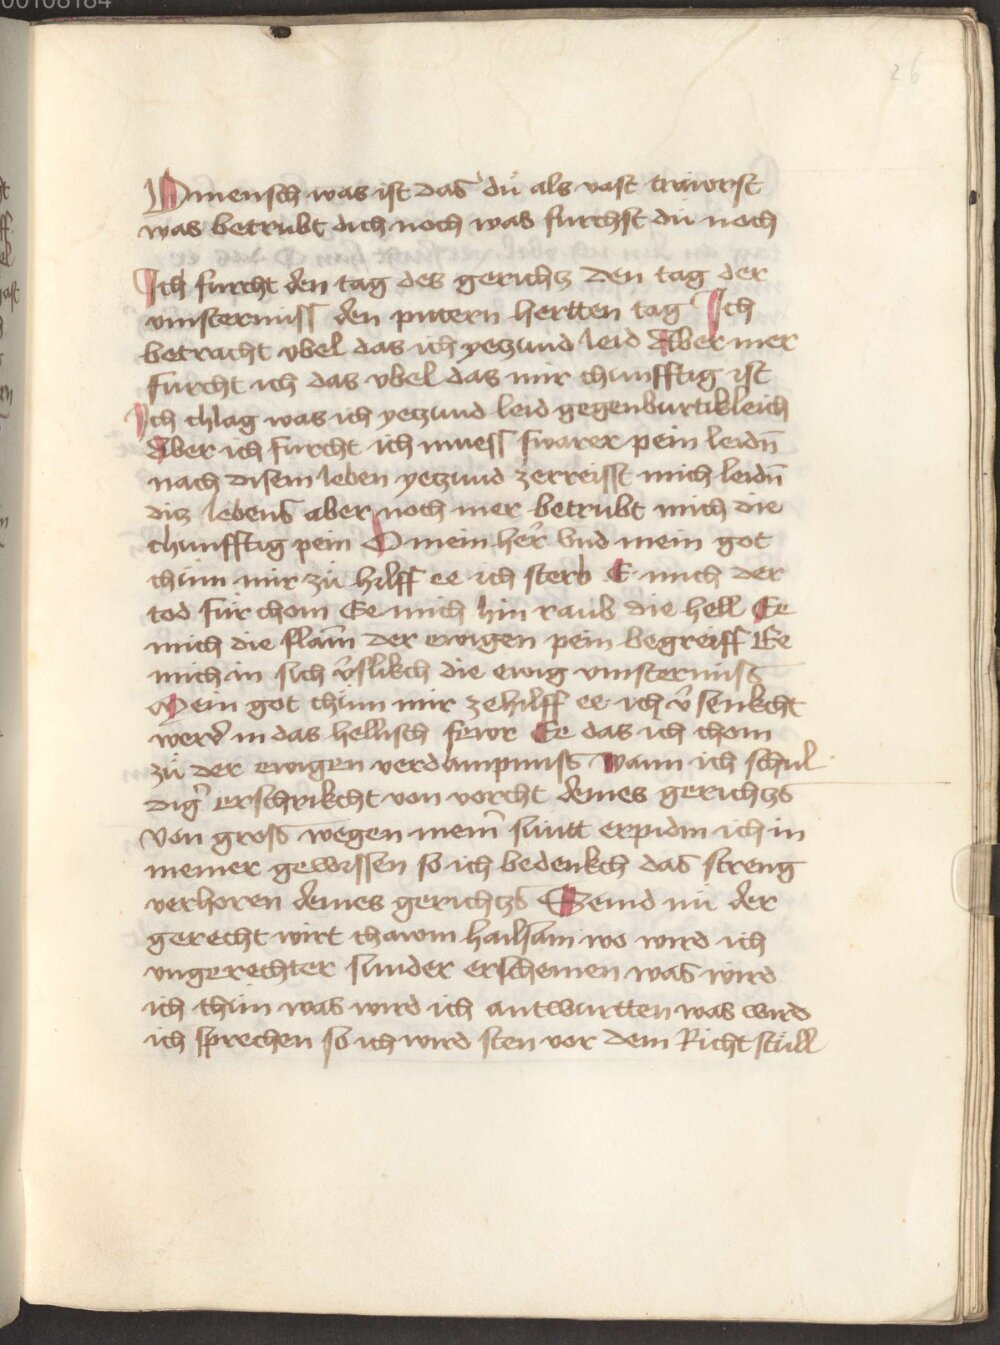 00108184
26
O mensch was ist das du als vast trawrst
was betrubt dich noch was furchst du noch
Ich furcht den tag des gerichtz den tag der
vinsternuss den pittern hertten tag Ich
betracht vbel das ich yeczund leid Aber mer
furcht ich das vbel das mir chunfftig ist
Ich chlag was ich yeczund leid gegenburtikleich
Aber ich furcht ich muess swarer pein leidn̄
nach disem leben yeczund zerreisst mich leidn̄
dicz lebens aber noch mer betrubt mich die
chunfftig pein O mein her̄ vnd mein got
chum mir zu hilff ee ich sterb E mich der
tod fur chom Ee mich hin raub die hell Ee
mich die flam̄ der ewigen pein begreiff Ee
mich in sich v̄slikch die ewig vinsternuss
Mein got chum mir zehilff ee ich v̄senkcht
werd in das hellisch fewr Ee das ich chom
zu der ewigen verdampnuss Wann ich schul
dig̉ erschrikcht von vorcht deines gerichtzs
Von gross wegen mein̄ suntt erpidm ich in
meiner gewissen so ich bedenkch das streng
verhoren deines gerichtzs Seind nu der
gerecht wirt chawm hailsam wo wird ich
vngerechter sunder erscheinen was wird
ich thun was wird ich antwurtten was wird
ich sprechen so ich wird sten vor dem Richtstull